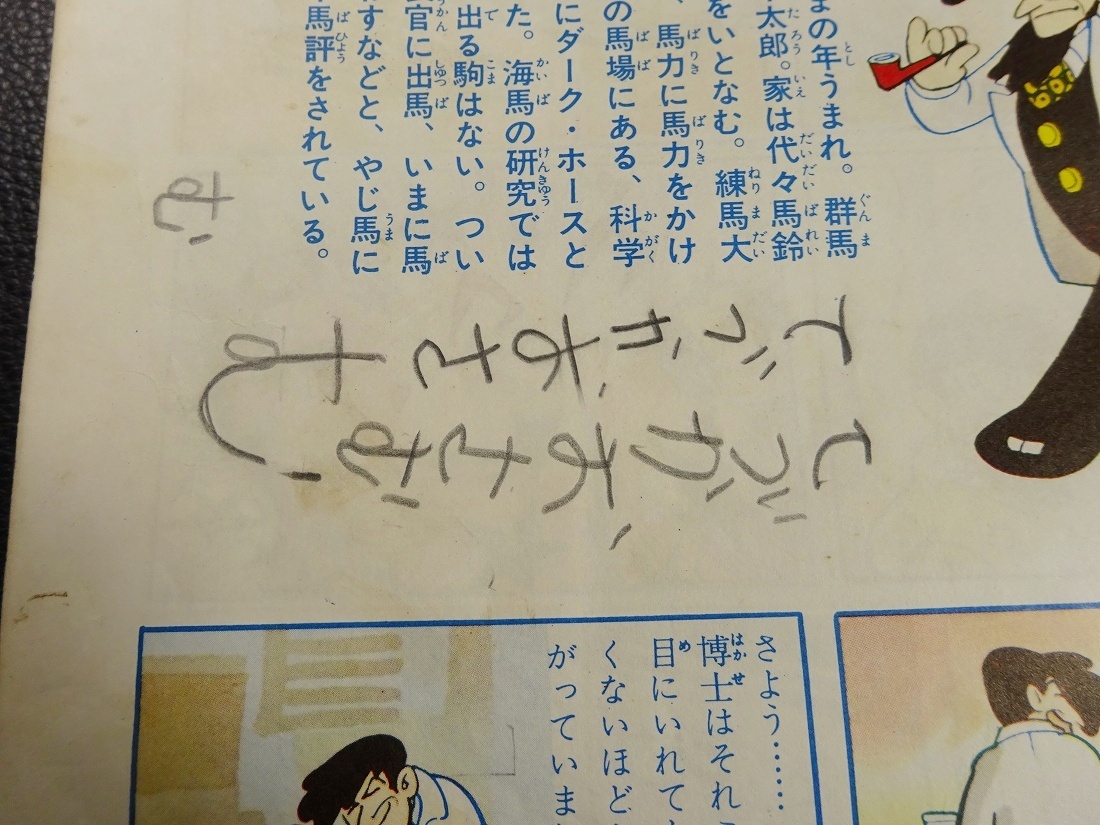 まの年うまれ。群馬
太郎。家は代々馬鈴
をいとなむ。練馬大
、馬力に馬力をかけ
の馬場にある、科学
にダーク・ホースと
た。海馬の研究では
出る駒はない。つい
官に出馬、いまに馬
すなどと、やじ馬に
馬評をされている。
む
てづかおさむ
てづかおさむ
さよう……
博士はそれ
目にいれて
くないほど
がっていま